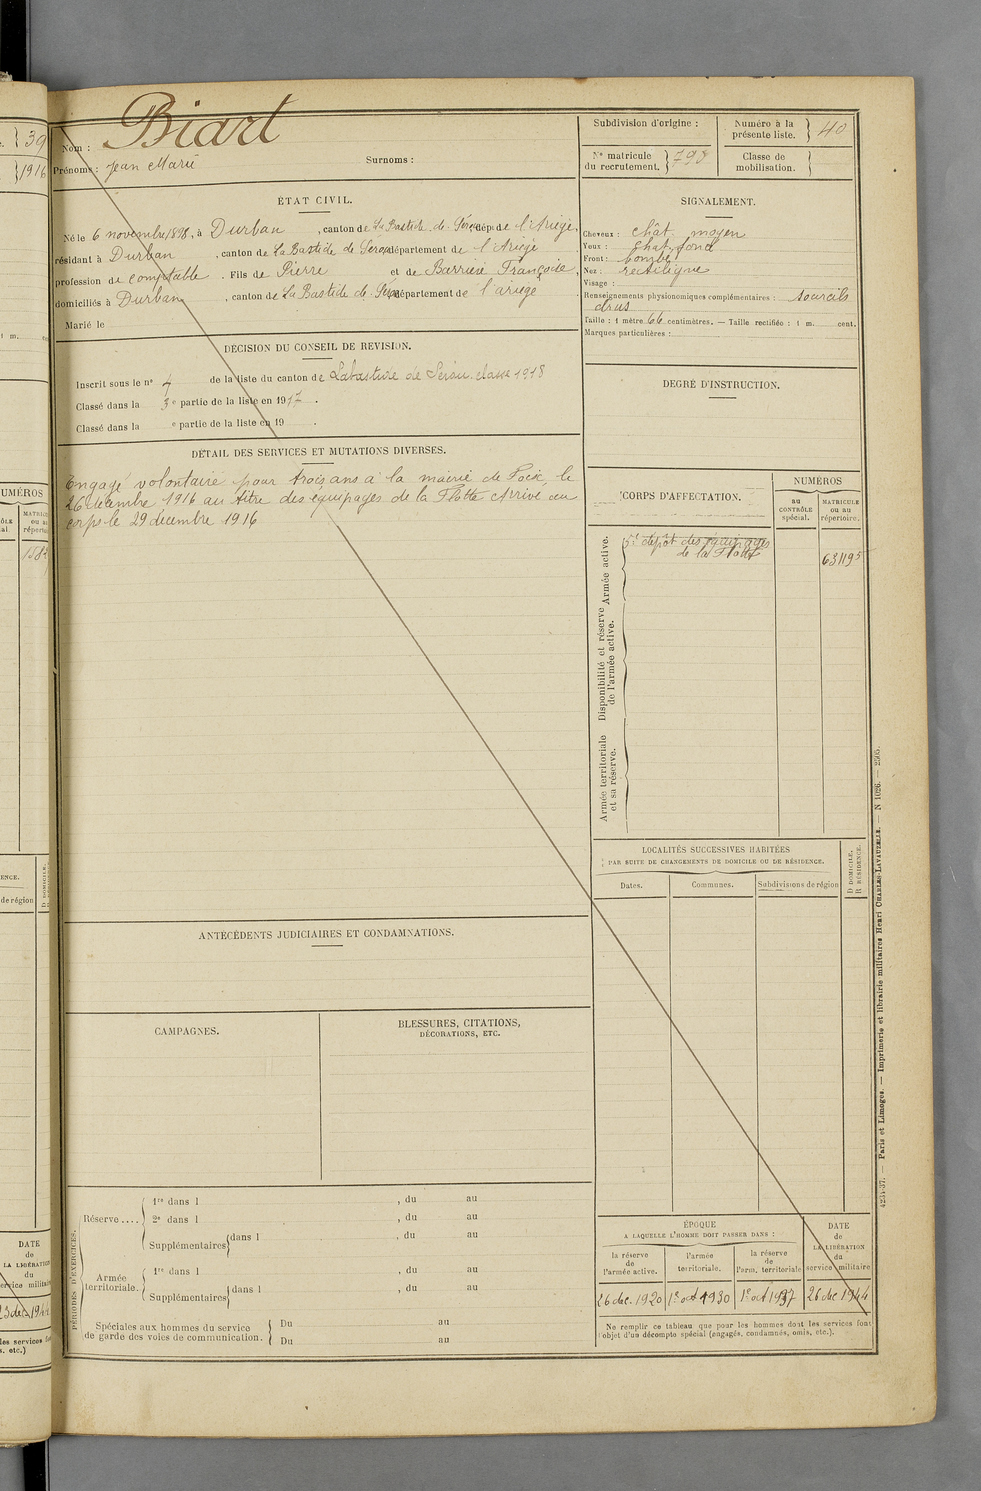 39
1916
Biart
Nom :
Prénoms : Jean Marie
Surnoms :
Subdivision d'origine :
Numéro à la présente liste. 40
N° matricule du recrutement. 798
Classe de mobilisation.
ÉTAT CIVIL.
Né le 6 novembre 1898, à Durban, canton de La Bastide de Sérou, dép. de l'Ariège,
résidant à Durban, canton de La Bastide de Serou département de l'Ariège
profession de comptable. Fils de Pierre et de Barrière Françoise,
domiciliés à Durban, canton de La Bastide de Serou département de l'ariège
Marié le
SIGNALEMENT.
Cheveux : chât. moyen
Yeux : chat. fond
Front : bombé
Nez : rectiligne
Visage :
Renseignements physionomiques complémentaires : sourcils
drus
Taille : 1 mètre 66 centimètres. — Taille rectifiée : 1 m. cent.
Marques particulières :
DÉCISION DU CONSEIL DE REVISION.
Inscrit sous le n° 4 de la liste du canton de Labastide de Serou classe 1918
Classé dans la 3e partie de la liste en 1917.
Classé dans la e partie de la liste en 19 .
DEGRÉ D'INSTRUCTION.
DÉTAIL DES SERVICES ET MUTATIONS DIVERSES.
Engagé volontaire pour trois ans à la mairie de Foix, le
26 décembre 1916 au titre des équipages de la Flotte Arrivé au
corps le 29 décembre 1916
CORPS D'AFFECTATION.
NUMÉROS
au CONTRÔLE spécial.
MATRICULE ou au répertoire.
Armée active.
5e dépôt des équipages
de la Flotte
63119 5
Disponibilité et réserve de l'armée active.
Armée territoriale et sa réserve.
LOCALITÉS SUCCESSIVES HABITÉES
PAR SUITE DE CHANGEMENTS DE DOMICILE OU DE RÉSIDENCE.
Dates.
Communes.
Subdivisions de région
D DOMICILE,
R RÉSIDENCE.
ANTÉCÉDENTS JUDICIAIRES ET CONDAMNATIONS.
CAMPAGNES.
BLESSURES, CITATIONS,
DÉCORATIONS, ETC.
PÉRIODES D'EXERCICES.
Réserve ....
1re dans l , du au
2e dans l , du au
Supplémentaires dans l , du au
Armée territoriale.
1re dans l , du au
Supplémentaires dans l , du au
Spéciales aux hommes du service
de garde des voies de communication.
Du au
Du au
ÉPOQUE
A LAQUELLE L'HOMME DOIT PASSER DANS :
la réserve de l'armée active.
l'armée territoriale.
la réserve de l'arm. territoriale
DATE de LA LIBÉRATION du service militaire
26 dec. 1920
1er oct 1930
1er oct 1937
26 dec 1944
Ne remplir ce tableau que pour les hommes dont les services font
l'objet d'un décompte spécial (engagés, condamnés, omis, etc.).
4254-37. — Paris et Limoges. — Imprimerie et librairie militaires Henri CHARLES-LAVAUZELLE. — N 1026. — 2505.
NUMÉROS
de région
DATE
de
LA LIBÉRATION
du
service militaire
23 dec. 1944
les services font
s, etc.)